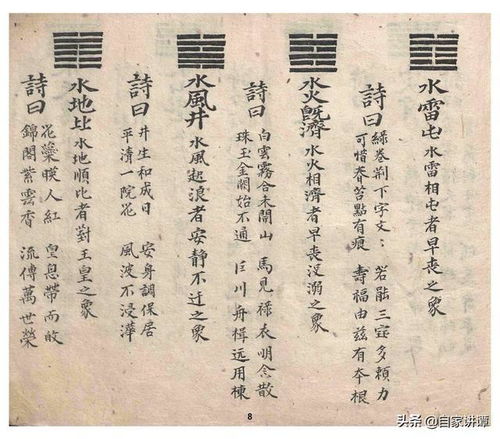 水雷屯 水雷相屯者早喪之象
詩曰
綠卷荆下字文： 若能三宝多賴力
可惜春苔點有痕 壽福由兹有本根
水火旣濟 水火相濟者早喪没溺之象
詩曰
白雲霧合未開山 馬見祿衣明念散
珠玉金闕始不通 巨川舟楫远用棟
水風井 水風起浪者安静不迁之象
詩曰
井生和成日 安身調保居
平清一院花 風波不浸萍
水地比 水地順比者對王皇之象
詩曰
花蘂暎人紅 皇恩帶雨收
錦閣紫雲香 流傳萬世榮
8
头条 @自家讲谭